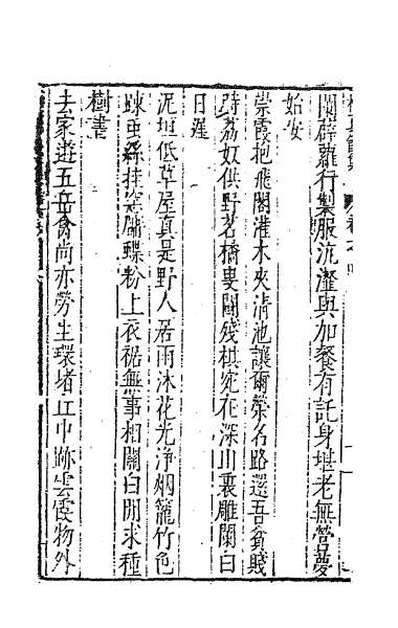 闌薜蘿行製服沆瀣與加餐有託身堪老無營夢
始安
崇霞抱飛閣灌木夾清池讓爾榮名路還吾貧賤
時荔奴供野茗橘叟鬪殘棋宛在深山裏雕闌白
日遲
泥垣低草屋真是野人居雨沐花光淨烟籠竹色
疎虫絲挂牖蝶粉上衣裾無事相關白閒求種
樹書
去家遊五岳禽尚亦勞生環堵江中跡雲霞物外